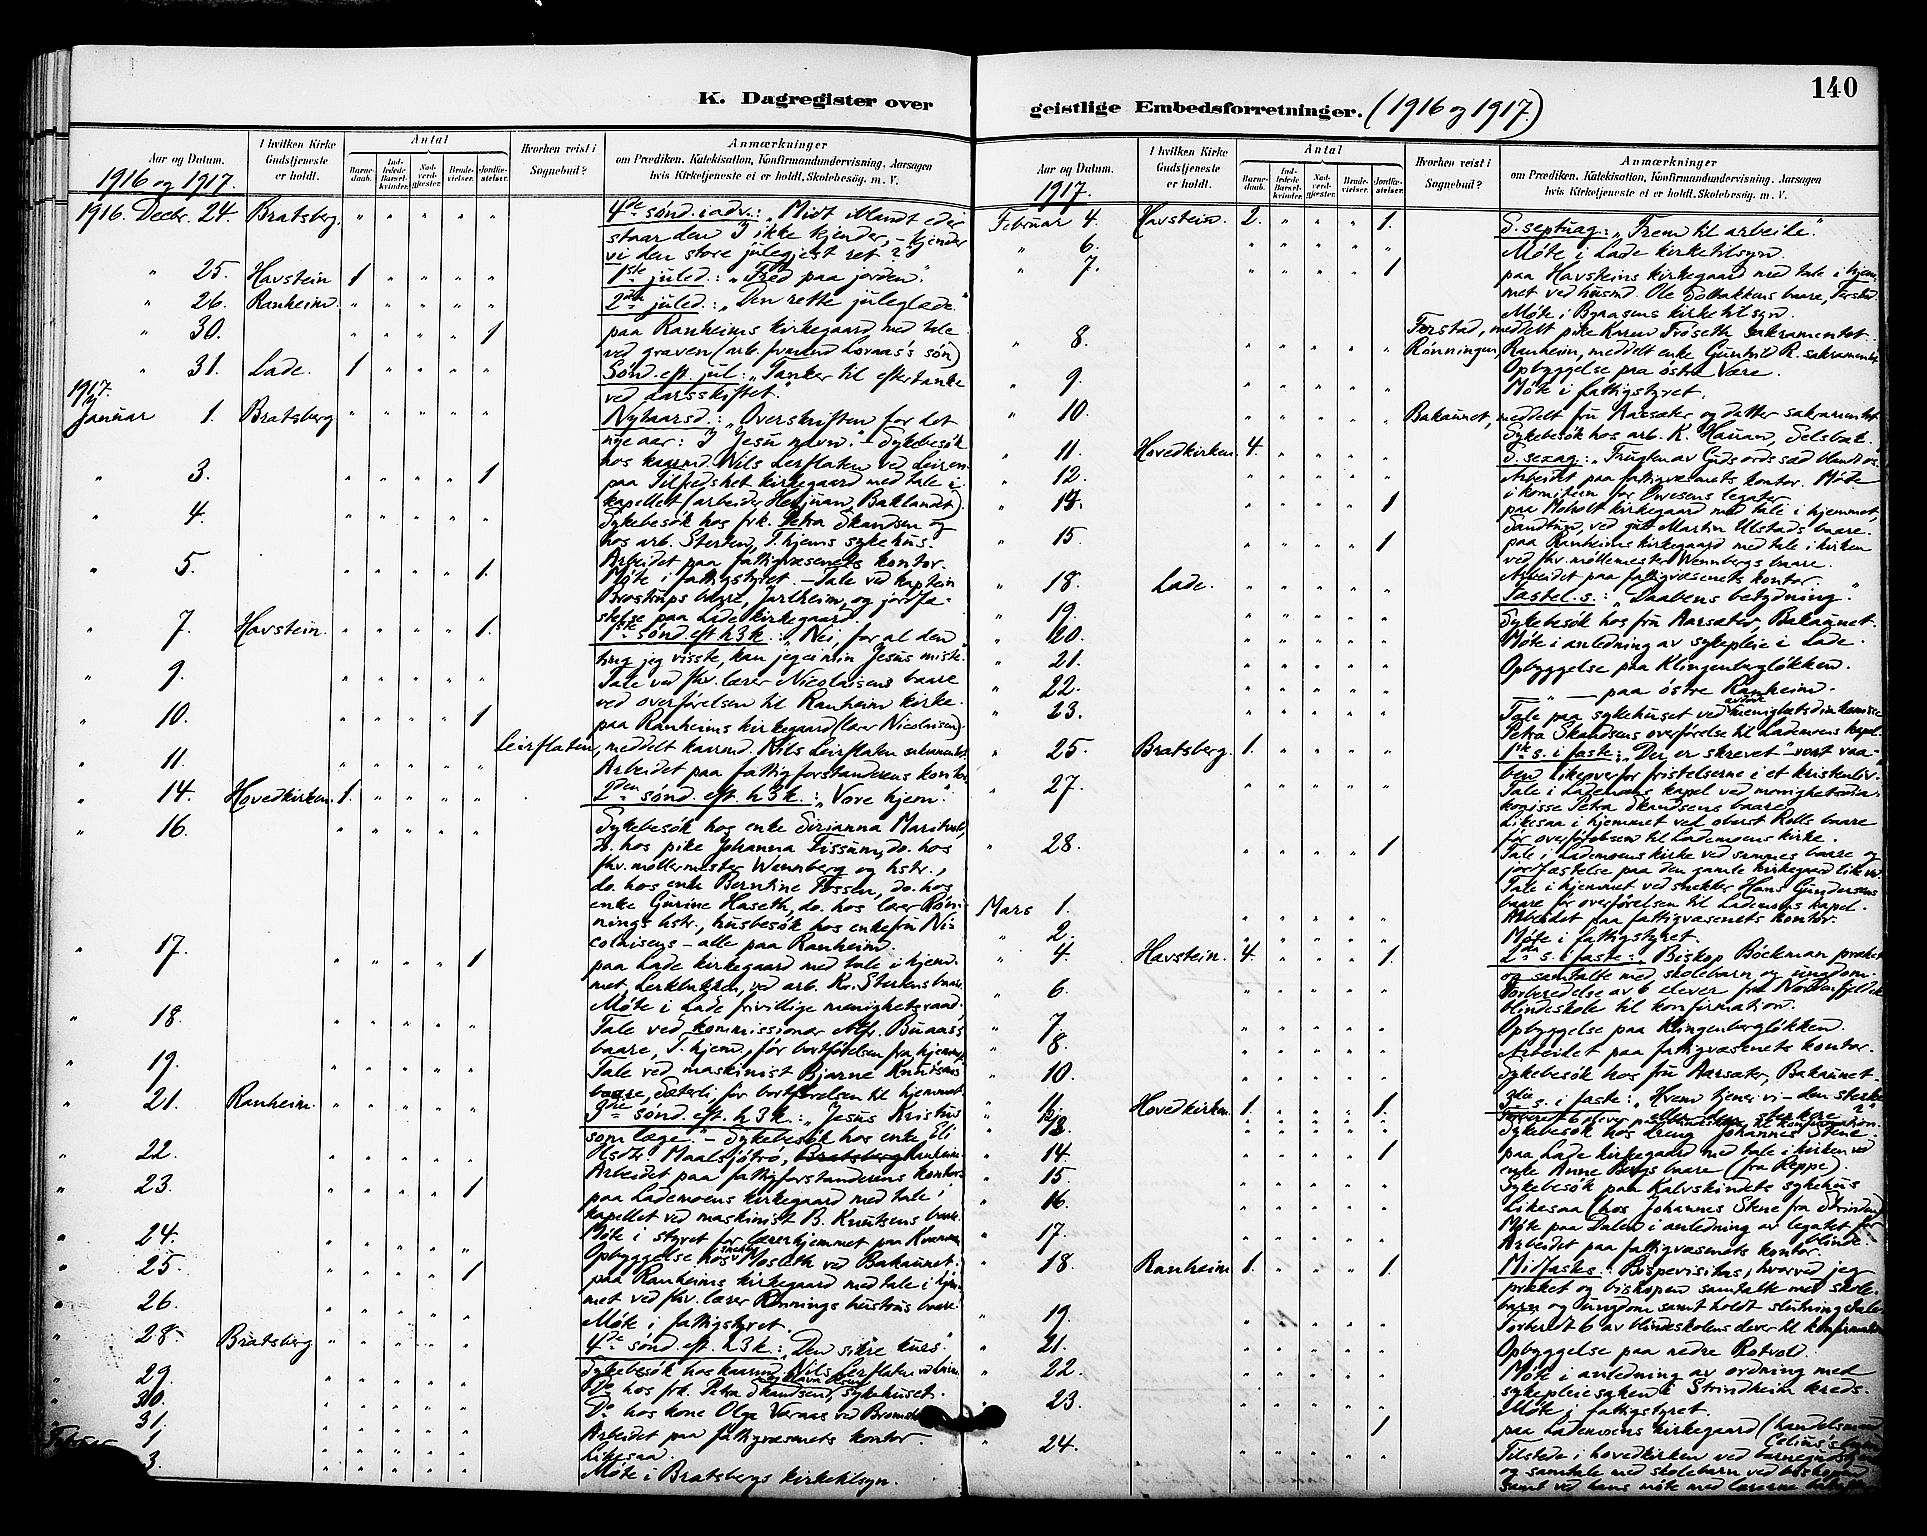 140
K. Dagregister over geistlige Embedsforretninger. (1916 og 1917)
Aar og Datum.
1916 og 1917.
I hvilken Kirke Gudstjeneste er holdt.
Antal
Barnedaab.
Indledede Barselkvinder.
Nadverdgjester.
Brudevielser.
Jordfæstelser.
Hvorhen reist i Sognebud?
Anmærkninger
om Prædiken, Katekisation, Konfirmandundervisning, Aarsagen
hvis Kirketjeneste ei er holdt, Skolebesøg, m. V.
1916. Decbr. 24. Bratsberg. 4de sønd. i adv.: "Midt iblandt eder
staar den I ikke kjender, – kjender
vi den store julegjest ret?
" 25. Havstein 1 1ste juled.: "Fred paa jorden".
" 26. Ranheim. 2den juled.: "Den rette juleglæde."
" 30. 1 paa Ranheims kirkegaard med tale
ved graven (arb. Lornæs's søn)
" 31. Lade. 1 Sønd. eft. jul: "Tanker til eftertanke
ved aarsskiftet."
1917.
Januar 1. Bratsberg Nytaarsd.: "Overskriften for det
nye aar: I Jesu navn." – Sykebesøk
hos kaarmd. Nils Leirflaten ved Leiren.
" 3. 1 paa Tilfredshet kirkegaard med tale i
kapellet (arbeider Baklandet).
" 4. Sykebesøk hos frk. Petra Skandsen og
hos arb. Sterten, T.hjems sykehus.
Arbeidet paa fattigvæsenets kontor.
" 5. 1. Møte i fattigstyret. – Tale ved kaptein
Brostrups baare, Jarlheim, og jordfæ-
stelse paa Lade kirkegaard.
" 7. Havstein. 1. 1ste sønd. eft. h3k.: "Nei, for al den
ting jeg visste, kan jeg ei min Jesus miste."
" 9. Tale ved fhv. lærer Nicolaisens baare
ved overførelsen til Ranheim kirke.
" 10. 1 paa Ranheims kirkegaard (lærer Nicolaisen).
" 11. Leirflaten, meddelt kaarmd. Nils Leirflaten sakramentet.
Arbeidet paa fattigforstanderens kontor
" 14. Hovedkirken. 1. 2den sønd. eft. h3k.: "Vore hjem".
" 16. Sykebesøk hos enke
do. hos pike Johanna Tissum, do. hos
fhv. møllermester Wennberg og hstr.,
do. hos enke Berntine Fossen, do. hos
enke Gurine Haseth, do. hos lærer Røn-
nings hstr., husbesøk hos enkefru Ni-
colaisens – alle paa Ranheim.
" 17. 1 paa Lade kirkegaard med tale i hjem-
met, ved arb. Stertens baare.
Møte i Lade frivillige menighetsraad.
" 18. Tale ved kommissionær Alfr. Buaas's
baare, T.hjem, før bortførelsen fra hjemmet
" 19. Tale ved maskinist Bjarne Knutsens
baare, Sæterli, før bortførelsen til hjemmet
" 21. Ranheim. 3dje sønd. eft. h3k.: "Jesus Kristus
som læge." – Sykebesøk hos enke Eli
" 22. Olsdtr. Maalsjøtrø,
Arbeidet paa fattigforstanderens kontor.
" 23. 1 paa Lademoens kirkegaard med tale i
kapellet ved maskinist B. Knutsens baare.
" 24. Møte i styret for lærerhjemmet paa
Opbyggelse hos Mosleth ved Bakaunet.
" 25. 1 paa Ranheims kirkegaard med tale i hjem-
met ved fhv. lærer Rønnings hustrus baare.
" 26. Møte i fattigstyret.
" 28. Bratsberg 4de sønd. eft. h3k.: "Den sikre kurs."
" 29. Sykebesøk hos kaarmd. Nils Leirflaten ved
" 30. Do hos frk. Petra Skandsen, sykehuset.
" 31. Do hos kone Olga Værnæs ved
1 Arbeidet paa fattigvæsenets kontor.
Likesaa.
3. Møte i Bratsbergs kirketilsyn.
Aar og Datum.
1917.
I hvilken Kirke Gudstjeneste er holdt.
Antal
Barnedaab.
Indledede Barselkvinder.
Nadverdgjester.
Brudevielser.
Jordfæstelser.
Hvorhen reist i Sognebud?
Anmærkninger
om Prædiken, Katekisation, Konfirmandundervisning, Aarsagen
hvis Kirketjeneste ei er holdt, Skolebesøg, m. V.
Februar 4. Havstein. 2. 1. S. septuag.: "Frem til arbeide."
" 6. Møte i Lade kirketilsyn.
" 7. 1 paa Havsteins kirkegaard med tale i hjem-
met ved husmd. Ole Solbakkens baare, Ferstad.
Møte i Byaasens kirketilsyn.
" 8. Ferstad, meddelt pike Karen Frøseth sakramentet.
Rønningen, Ranheim, meddelt enke Gunhild R. sakramentet
Opbyggelse paa østre Være.
" 9. Møte i fattigstyret.
" 10. Bakaunet, meddelt fru Aarsæter og datter sakramentet
Sykebesøk hos arb. K. Haaran, Selsbak.
" 11. Hovedkirken. 4. S. sexag.: "Frugten av Guds ords sæd blandt os.
" 12. Arbeidet paa fattigvæsenets kontor. Møte
i komiteen for legater
" 14. 1 paa Moholt kirkegaard med tale i hjemmet,
Sandtun, ved Martin Ulstads baare.
" 15. 1 paa Ranheims kirkegaard med tale i kirken
ved fhv. møllemester Wennbergs baare.
Arbeidet paa fattigvæsenets kontor.
" 18. Lade. Fastel. s.: "Daabens betydning."
" 19. Sykebesøk hos fru Aarsæter, Bakaunet.
" 20. Møte i anledning av sykepleie i Lade.
" 21. Opbyggelse paa Klingenbergløkken.
" 22. — " — paa østre Ranheim.
" 23. Tale paa sykehuset ved menighetsdiakonisse
Petra Skandsens overførelse til Lademoens kapel.
" 25. Bratsberg. 1. 1ste s. i faste: "Der er skrevet" – vort vaa-
ben likeoverfor fristelserne i et kristenliv.
" 27. Tale i Lademoens kapel ved menighetsdia-
konisse Petra Skandsens baare.
Likesaa i hjemmet ved oberst Rolls baare
før overførelsen til Lademoens kirke.
" 28. 1 Tale i Lademoens kirke ved sammes baare og
jordfæstelse paa den gamle kirkegaard
Tale i hjemmet ved snekker Hans Gundersens
baare før overførelsen til Lademoens kapel.
Mars 1. Arbeidet paa fattigvæsenets kontor.
" 2. Møte i fattigstyret.
" 4. Havstein. 4. 1. 2den s. i faste: Biskop Böckman præket
og samtalte med skolebarn og ungdom.
" 6. Forberedelse av 6 elever fra Nordenfjeldske
blindeskole til konfirmation.
" 7. Opbyggelse paa Klingenbergløkken.
" 8. Arbeidet paa fattigvæsenets kontor.
" 10. Sykebesøk hos fru Aarsæter, Bakaunet.
" 11. Hovedkirken 1. 1. 3dje s. i faste: "Hvem tjener vi – den sterke
eller den sterkere?"
" 13. Sykebesøk hos dreng Johannes Stene
" 14. 1 paa Lade kirkegaard med tale i kirken ved
enke Anne Bergs baare (fra Reppe).
" 15. Sykebesøk paa Kalvskindets sykehus
" 16. Likesaa (hos Johannes Stene fra Strinden)
" 17. Møte paa Dalen i anledning av legatet for
blinde.
Arbeidet paa fattigvæsenets kontor.
" 18. Ranheim 1. 1. Midfaste s.: Bispevisitas, hvorved jeg
præket og biskopen samtalte med skole-
barn og ungdom samt holdt slutningstalen
" 19. Forberedt 6 av blindeskolens elever til konfirmation
" 21. Opbyggelse paa nedre Rotvold.
" 22. Møte i anledning av ordning med
sykepleiesaken i Strindheim kreds.
" 23. Møte i fattigstyret.
1 paa Lademoens kirkegaard (handelsmand
" 24. Tilstede i hovedkirken ved
og samtale med skolebarn ved biskopen
samt ved hans møte med lærerne